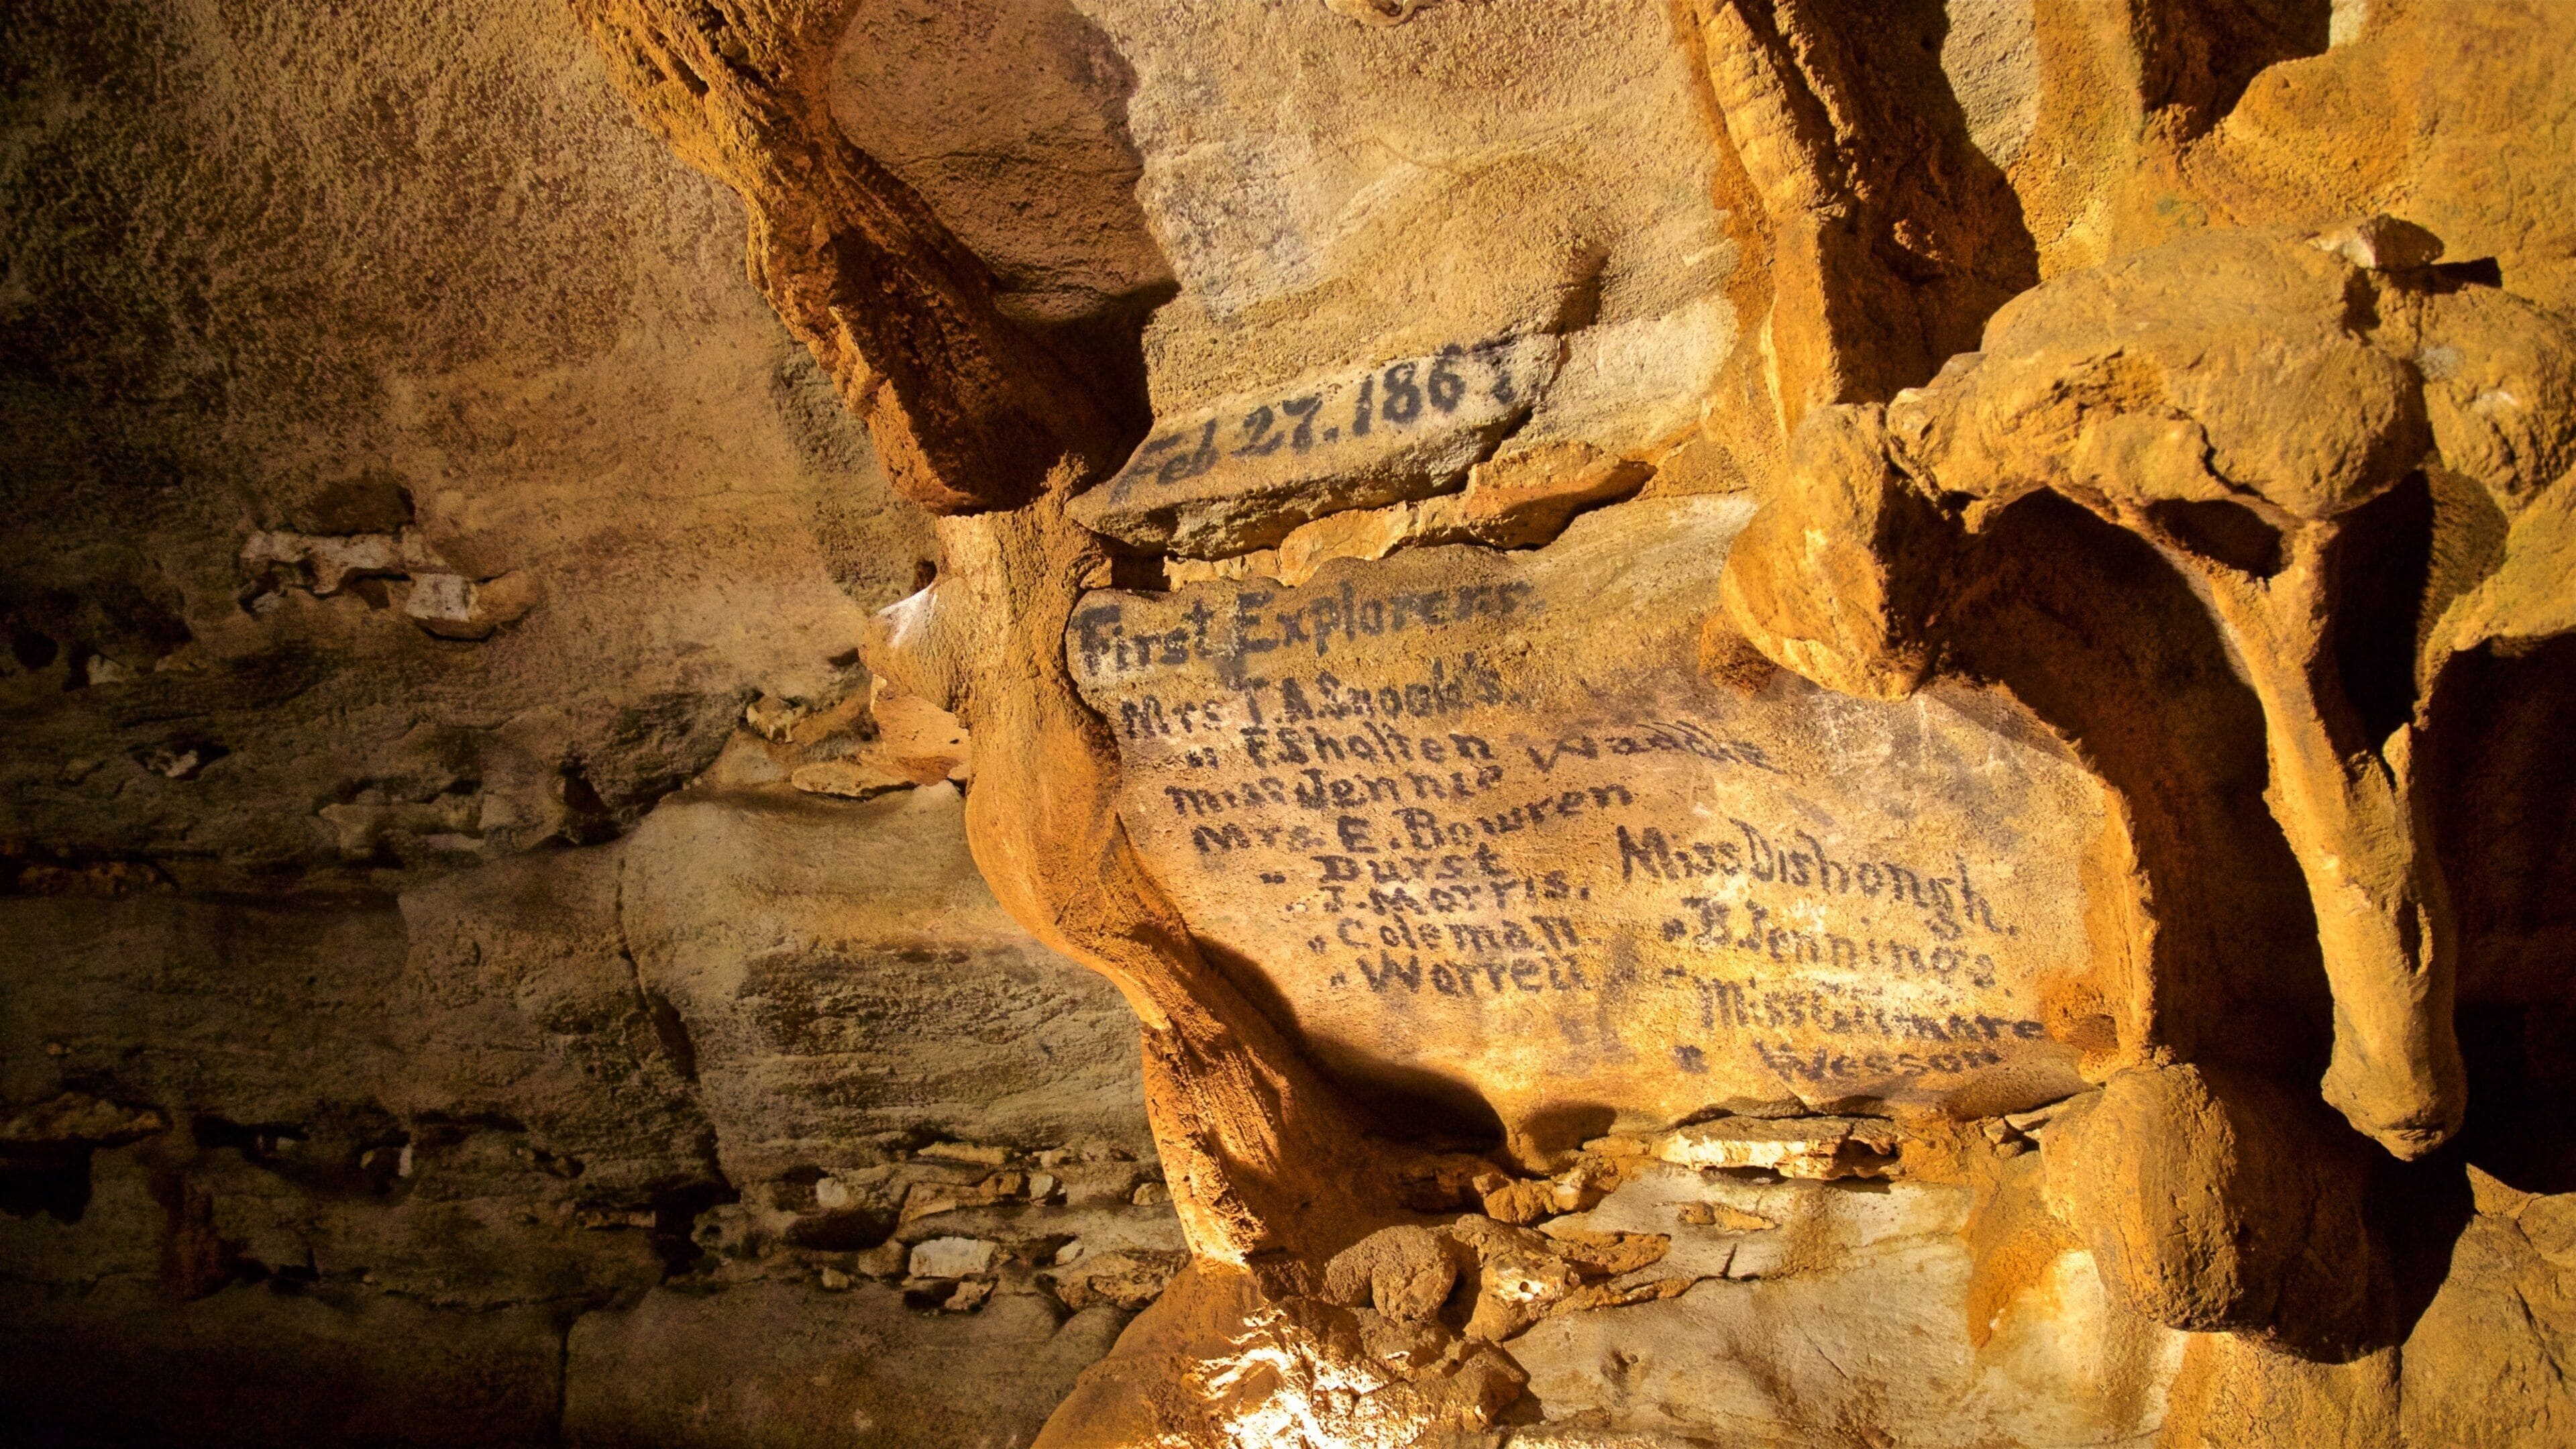 Feb 27. 1867
First Explorers.
Mrs T.A.Snook's.
" F.Sholten
Miss Jennie Waddle
Mrs. E. Bowren
" Durst
" J. Morris.
" Coleman
" Worrell
Miss Dishongh.
" B. Jennings.
" Miss Gilmore
" Wesson